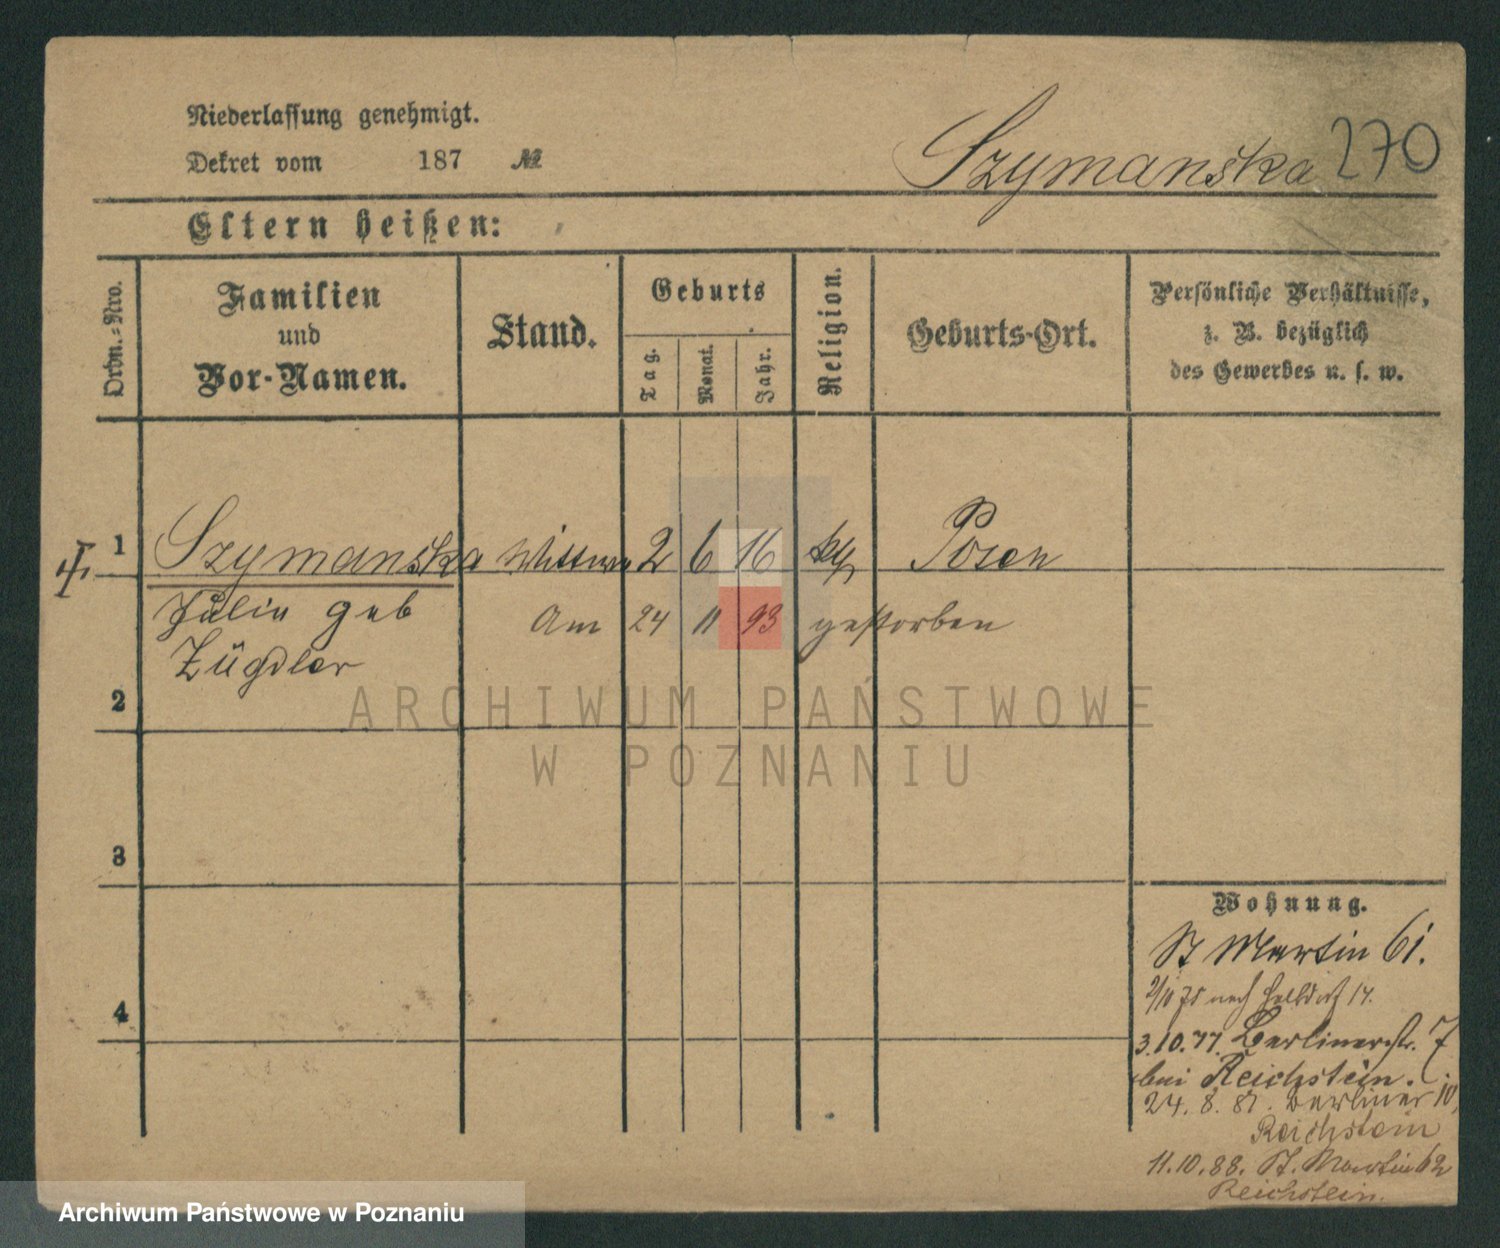 Niederlassung genehmigt.
Dekret vom 187 №
Szymanska 270
Eltern heißen:
Ordn.=Nro.
Familien
und
Vor-Namen.
Stand.
Geburts
Tag.
Monat.
Jahr.
Religion.
Geburts-Ort.
Persönliche Verhältnisse,
z. B. bezüglich
des Gewerbes u. s. w.
1 Szymanska Wittwe 2 6 16 Posen
Julie geb
Am 24 11 93 gestorben
2
3
4
Wohnung.
St Martin 61.
nach 14.
3.10.77. Berlinerstr. 7
bei Reichstein.
24. 8. 81. Berliner 10,
Reichstein
11.10.88. St. Martin 62
Reichstein.
ARCHIWUM PAŃSTWOWE
W POZNANIU
Archiwum Państwowe w Poznaniu